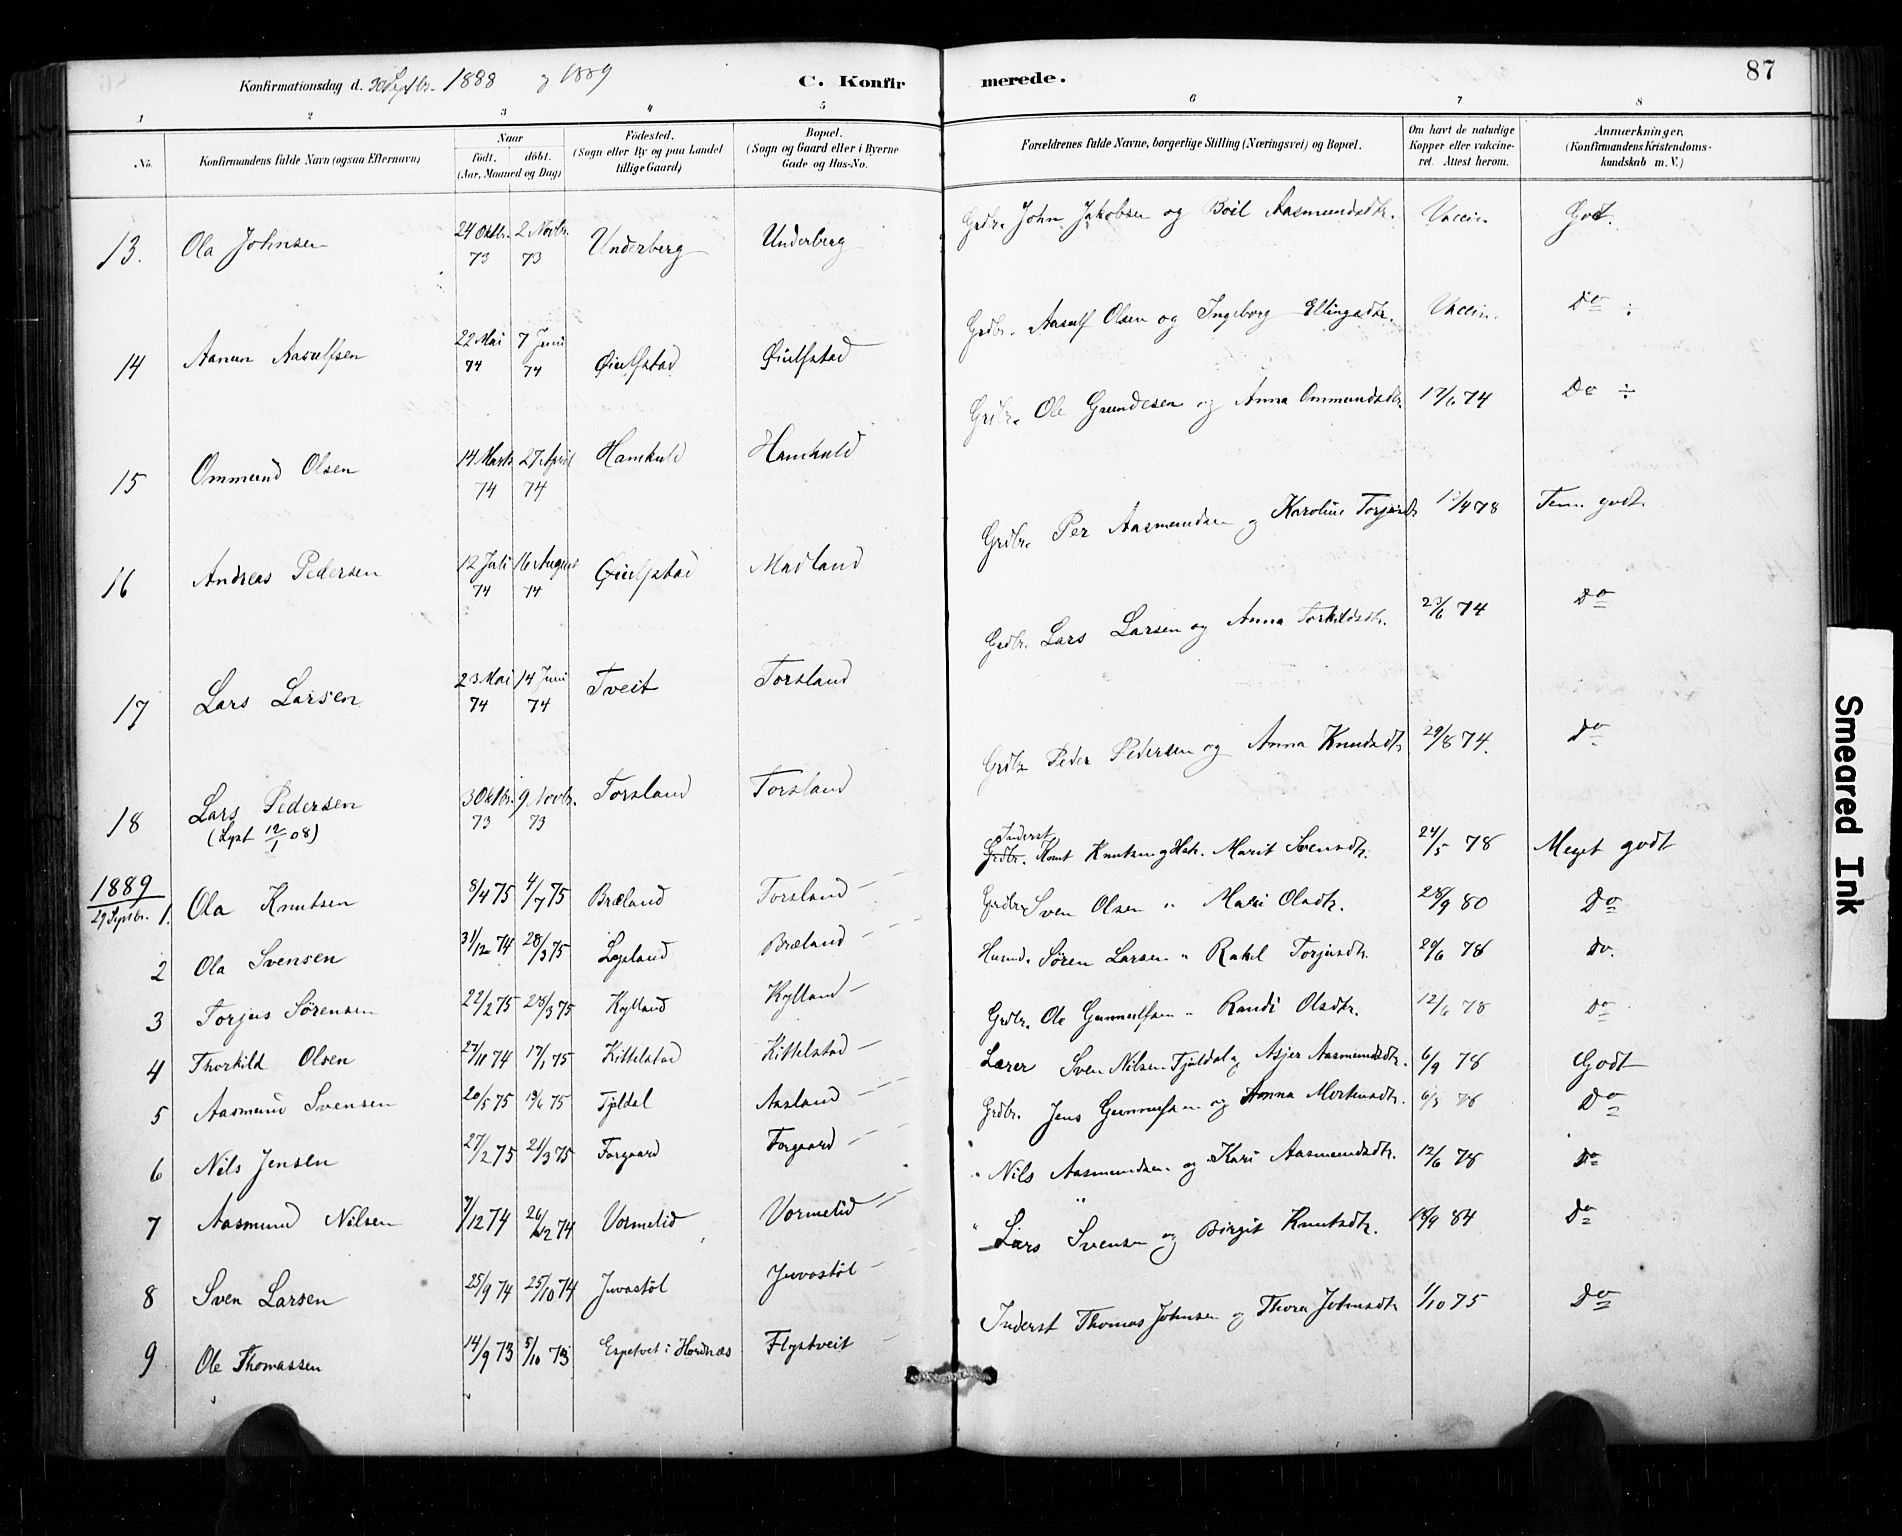 Konfirmationsdag d. 30 Septbr. 1888 og 1889 C. Konfirmerede. 87
1 2 3 4 5 6 7 8
No. Konfirmandens fulde Navn (ogsaa Efternavn) Naar født. døbt. (Aar, Maaned og Dag) Fødested. (Sogn eller By og paa Landet tillige Gaard) Bopæl. (Sogn og Gaard eller i Byerne Gade og Hus-No. Forældrenes fulde Navne, borgerlige Stilling (Næringsvei) og Bopæl. Om havt de naturlige Kopper eller vakcineret. Attest herom. Anmærkninger, (Konfirmandens Kristendomskundskab m. V.)
13. Ola Johnsen 24 Oktbr. 73 2 Novbr. 73 Underberg Underberg Grdbr. John Jakobsen og Boil Aasmundsdtr. Vaccin. Godt.
14 Aanun Aasulfsen 22 Mai 74 7 Juni 74 Øiulfstad Øiulfstad Grdbr. Aasulf Olsen og Ingeborg Ellingsdtr. Vaccin. Do ÷
15 Ommund Olsen 14 Marts 74 27 April 74 Hamkuld Hamkuld Grdbr. Ole Gundesen og Anna Ommundsdtr. 17/6 74 Do ÷
16 Andreas Pedersen 12 Juli 74 16 August 74 Øiulfstad Madland Grdbr. Per Aasmundsen og Karoline Torjusdtr. 12/4 78 Tem. godt.
17 Lars Larsen 23 Mai 74 14 Juni 74 Tveit Torsland Grdbr. Lars Larsen og Anna Torkildsdtr. 23/6 74 Do
18 Lars Pedersen 3 Oktbr. 73 9 Novbr. 73 Torsland Torsland Grdbr. Peder Pedersen og Anna Knudsdtr. 29/8 74. Do
(Lyst 12/1 08)
1889
29 Septbr. 1. Ola Knutsen 8/4 75 4/7 75 Bræland Torsland Inderst Grdbr. Knut Knutsen og Hst. Marit Svensdtr. 24/5 78 Meget godt
2 Ola Svensen 31/12 74 28/3 75 Løgeland Bræland Grdbr. Sven Olsen " Mari Olsdtr. 28/9 80 Do
3 Torjus Sørensen 22/2 75 28/3 75 Kylland Kylland Husmd. Søren Larsen " Rakel Torjusdtr. 29/6 78 Do.
4 Thorkild Olsen 27/11 74 17/1 75 Kittelstad Kittelstad Grdbr. Ole Gunnulfsen " Randi Olsdtr. 12/6 78 Do
5 Aasmund Svensen 20/5 75 19/6 75 Fjeldal Aasland Lærer Sven Nilsen Fjeldal og Asjer Aasmundsdtr. 6/9 78 Godt
6 Nils Jensen 27/2 75 21/3 75 Forgaard Forgaard Grdbr. Jens Gunnulfsen og Anna Mortensdtr. Do
7 Aasmund Nilsen 7/12 74 26/12 74 Vormelid Vormelid " Nils Aasmundsen og Kari Aasmundsdtr. 12/6 78 Do
8 Sven Larsen 25/9 74 25/10 74 Juvastøl Juvastøl " Lars Svensen og Birgit Knutsdtr. 18/9 84 Do
9 Ole Thomassen 14/9 73 5/10 73 Espetvet i Hordnæs Flystveit Inderst Thomas Johnsen og Thora Johnsdtr. 1/10 75 Do
Smeared Ink